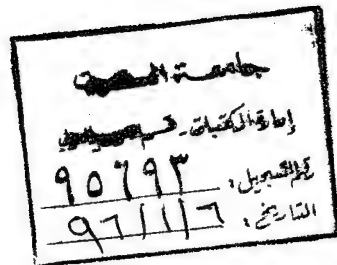 جامعة
إدارة المكتبات - قسم
رقم التسجيل: ٩٥٦٩٣
التاريخ: ٩٦/١/٦